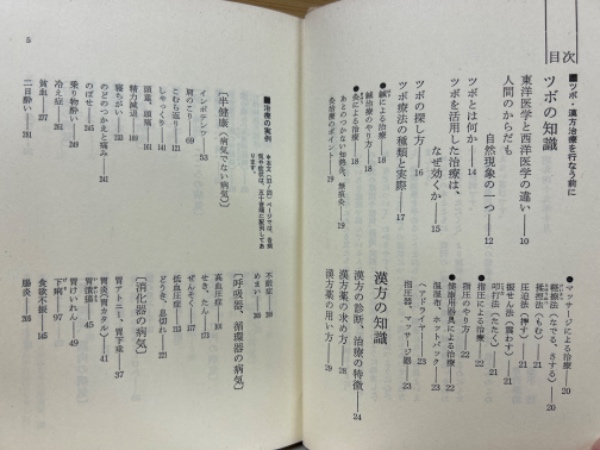 目次
■ツボ・漢方治療を行なう前に
ツボの知識
東洋医学と西洋医学の違い——10
人間のからだも
自然現象の一つ——12
ツボとは何か——14
ツボを活用した治療は、
なぜ効くか——15
ツボの探し方——16
ツボ療法の種類と実際——17
●鍼による治療——18
鍼治療のやり方——18
●灸による治療——18
あとのつかない知熱灸、無痕灸——19
灸治療のポイント——19
●マッサージによる治療——20
軽擦法(なでる、さする)——20
揉捏法(もむ)——21
圧迫法(押す)——21
振せん法(震わす)——21
叩打法(たたく)——21
●指圧による治療——22
指圧のやり方——22
●健康用器具による治療——22
温湿布、ホットパック——23
ヘアドライヤー——23
指圧器、マッサージ器——23
漢方の知識
漢方の診断、治療の特徴——24
漢方薬の求め方——28
漢方薬の用い方——29
■治療の実例
[半健康(病気でない病気)]
インポテンツ——53
肩のこり——69
こむら返り——121
しゃっくり——141
頭重、頭痛——161
精力減退——169
寝ちがい——233
のどのつかえと痛み——241
のぼせ——245
乗り物酔い——249
冷え症——261
貧血——277
二日酔い——281
5
不眠症
めまい
[呼吸器、循環器の病気]
高血圧症——109
せき、たん
ぜんそく
低血圧症——213
どうき、息切れ——221
[消化器の病気]
胃アトニー、胃下垂——37
胃炎(胃カタル)——41
胃潰瘍——45
胃けいれん——49
下痢——97
食欲不振——145
腸炎——205